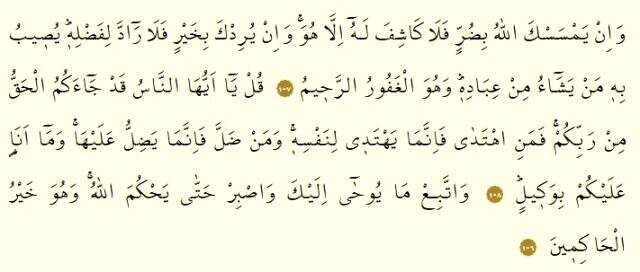 وَاِنْ يَمْسَسْكَ اللّٰهُ بِضُرٍّ فَلَا كَاشِفَ لَهُٓ اِلَّا هُوَۚ وَاِنْ يُرِدْكَ بِخَيْرٍ فَلَا رَٓادَّ لِفَضْلِه۪ۜ يُص۪يبُ
بِه۪ مَنْ يَشَٓاءُ مِنْ عِبَادِه۪ۜ وَهُوَ الْغَفُورُ الرَّح۪يمُ ١٠٧ قُلْ يَٓا اَيُّهَا النَّاسُ قَدْ جَٓاءَكُمُ الْحَقُّ
مِنْ رَبِّكُمْۚ فَمَنِ اهْتَدٰى فَاِنَّمَا يَهْتَد۪ي لِنَفْسِه۪ۚ وَمَنْ ضَلَّ فَاِنَّمَا يَضِلُّ عَلَيْهَاۚ وَمَٓا اَنَا۬
عَلَيْكُمْ بِوَك۪يلٍۜ ١٠٨ وَاتَّبِعْ مَا يُوحٰٓى اِلَيْكَ وَاصْبِرْ حَتّٰى يَحْكُمَ اللّٰهُۚ وَهُوَ خَيْرُ
الْحَاكِم۪ينَ ١٠٩